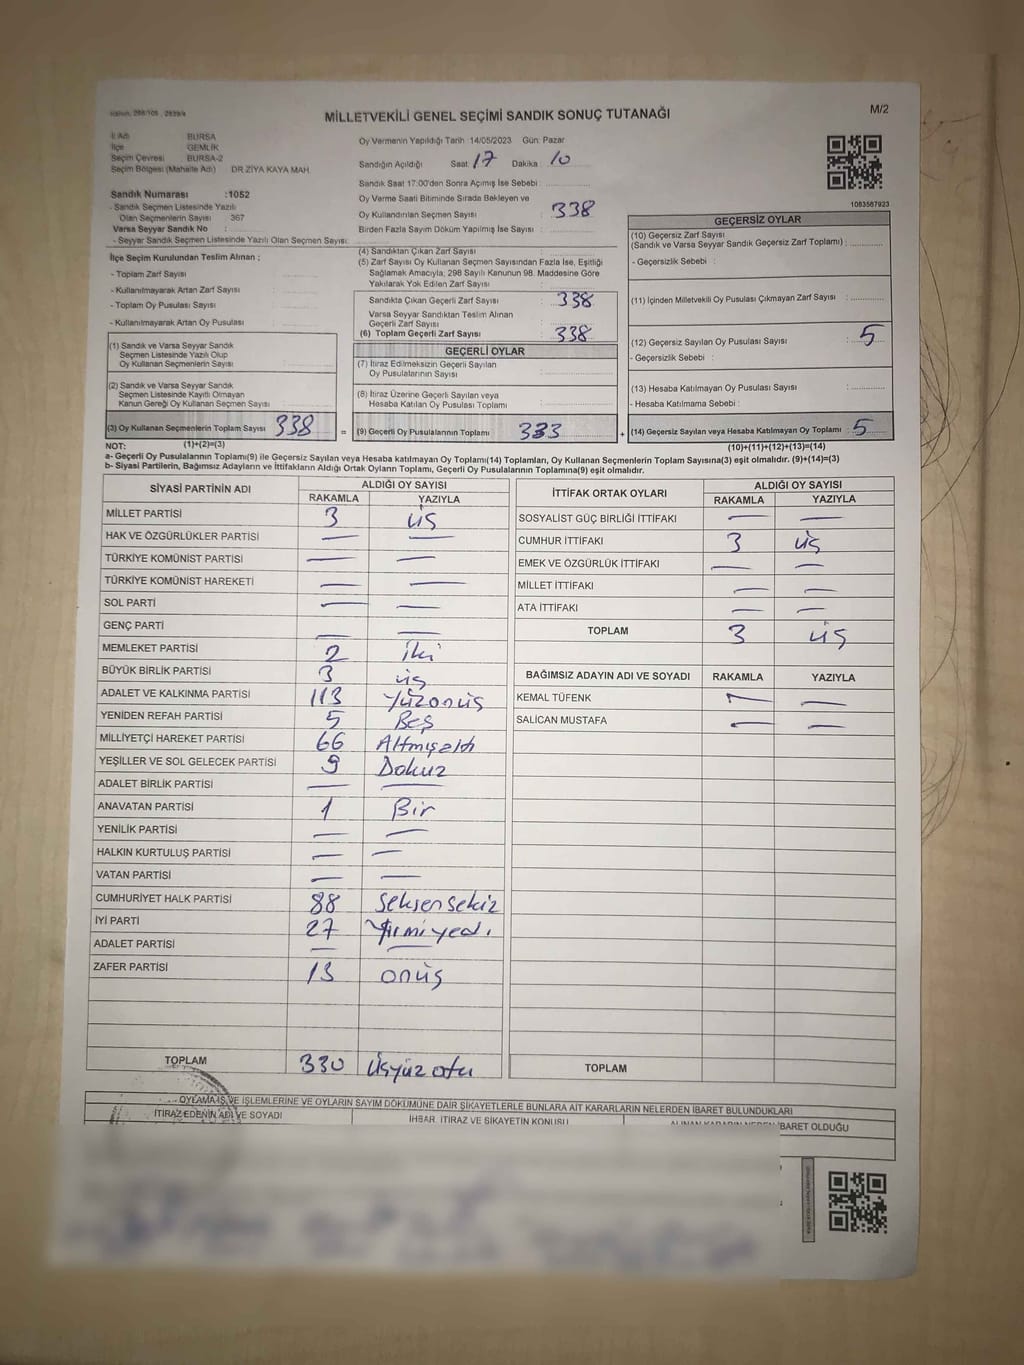 MİLLETVEKİLİ GENEL SEÇİMİ SANDIK SONUÇ TUTANAĞI
M/2
İl Adı BURSA
İlçe GEMLİK
Seçim Çevresi BURSA-2
Seçim Bölgesi (Mahalle Adı) DR.ZİYA KAYA MAH.
Sandık Numarası :1052
- Sandık Seçmen Listesinde Yazılı
Olan Seçmenlerin Sayısı : 367
Varsa Seyyar Sandık No :
- Seyyar Sandık Seçmen Listesinde Yazılı Olan Seçmen Sayısı:
İlçe Seçim Kurulundan Teslim Alınan ;
- Toplam Zarf Sayısı :
- Kullanılmayarak Artan Zarf Sayısı :
- Toplam Oy Pusulası Sayısı :
- Kullanılmayarak Artan Oy Pusulası :
(1) Sandık ve Varsa Seyyar Sandık
Seçmen Listesinde Yazılı Olup
Oy Kullanan Seçmenlerin Sayısı :
(2) Sandık ve Varsa Seyyar Sandık
Seçmen Listesinde Kayıtlı Olmayan
Kanun Gereği Oy Kullanan Seçmen Sayısı :
(3) Oy Kullanan Seçmenlerin Toplam Sayısı 338
Oy Vermenin Yapıldığı Tarih 14/05/2023 Gün: Pazar
Sandığın Açıldığı Saat 17 Dakika 10
Sandık Saat 17:00'den Sonra Açımış İse Sebebi :
Oy Verme Saati Bitiminde Sırada Bekleyen ve
Oy Kullandırılan Seçmen Sayısı : 338
Birden Fazla Sayım Döküm Yapılmış İse Sayısı :
(4) Sandıktan Çıkan Zarf Sayısı :
(5) Zarf Sayısı Oy Kullanan Seçmen Sayısından Fazla İse, Eşitliği
Sağlamak Amacıyla, 298 Sayılı Kanunun 98. Maddesine Göre
Yakılarak Yok Edilen Zarf Sayısı :
Sandıkta Çıkan Geçerli Zarf Sayısı : 338
Varsa Seyyar Sandıktan Teslim Alınan
Geçerli Zarf Sayısı :
(6) Toplam Geçerli Zarf Sayısı : 338
GEÇERLİ OYLAR
(7) İtiraz Edilmeksizin Geçerli Sayılan
Oy Pusulalarının Sayısı :
(8) İtiraz Üzerine Geçerli Sayılan veya
Hesaba Katılan Oy Pusulası Toplamı :
= (9) Geçerli Oy Pusulalarının Toplamı 333
1083567923
GEÇERSİZ OYLAR
(10) Geçersiz Zarf Sayısı
(Sandık ve Varsa Seyyar Sandık Geçersiz Zarf Toplamı) :
- Geçersizlik Sebebi :
(11) İçinden Milletvekili Oy Pusulası Çıkmayan Zarf Sayısı :
(12) Geçersiz Sayılan Oy Pusulası Sayısı : 5
- Geçersizlik Sebebi :
(13) Hesaba Katılmayan Oy Pusulası Sayısı :
- Hesaba Katılmama Sebebi :
+ (14) Geçersiz Sayılan veya Hesaba Katılmayan Oy Toplamı : 5
NOT: (1)+(2)=(3) (10)+(11)+(12)+(13)=(14)
a- Geçerli Oy Pusulalarının Toplamı(9) ile Geçersiz Sayılan veya Hesaba katılmayan Oy Toplamı(14) Toplamları, Oy Kullanan Seçmenlerin Toplam Sayısına(3) eşit olmalıdır. (9)+(14)=(3)
b- Siyasi Partilerin, Bağımsız Adayların ve İttifakların Aldığı Ortak Oyların Toplamı, Geçerli Oy Pusulalarının Toplamına(9) eşit olmalıdır.
SİYASİ PARTİNİN ADI ALDIĞI OY SAYISI
RAKAMLA YAZIYLA
MİLLET PARTİSİ 3 üş
HAK VE ÖZGÜRLÜKLER PARTİSİ — —
TÜRKİYE KOMÜNİST PARTİSİ — —
TÜRKİYE KOMÜNİST HAREKETİ — —
SOL PARTİ — —
GENÇ PARTİ — —
MEMLEKET PARTİSİ 2 iki
BÜYÜK BİRLİK PARTİSİ 3 üş
ADALET VE KALKINMA PARTİSİ 113 yüzonüş
YENİDEN REFAH PARTİSİ 5 Beş
MİLLİYETÇİ HAREKET PARTİSİ 66 Altmışaltı
YEŞİLLER VE SOL GELECEK PARTİSİ 9 Dokuz
ADALET BİRLİK PARTİSİ — —
ANAVATAN PARTİSİ 1 Bir
YENİLİK PARTİSİ — —
HALKIN KURTULUŞ PARTİSİ — —
VATAN PARTİSİ — —
CUMHURİYET HALK PARTİSİ 88 seksensekiz
İYİ PARTİ 27 yirmiyedi
ADALET PARTİSİ — —
ZAFER PARTİSİ 13 onüş
TOPLAM 330 üşyüz otu
İTTİFAK ORTAK OYLARI ALDIĞI OY SAYISI
RAKAMLA YAZIYLA
SOSYALİST GÜÇ BİRLİĞİ İTTİFAKI — —
CUMHUR İTTİFAKI 3 üş
EMEK VE ÖZGÜRLÜK İTTİFAKI — —
MİLLET İTTİFAKI — —
ATA İTTİFAKI — —
TOPLAM 3 üş
BAĞIMSIZ ADAYIN ADI VE SOYADI RAKAMLA YAZIYLA
KEMAL TÜFENK — —
SALİCAN MUSTAFA — —
TOPLAM
OYLAMA İŞ VE İŞLEMLERİNE VE OYLARIN SAYIM DÖKÜMÜNE DAİR ŞİKAYETLERLE BUNLARA AİT KARARLARIN NELERDEN İBARET BULUNDUKLARI
İTİRAZ EDENİN ADI VE SOYADI
İHBAR, İTİRAZ VE ŞİKAYETİN KONUSU
İBARET OLDUĞU